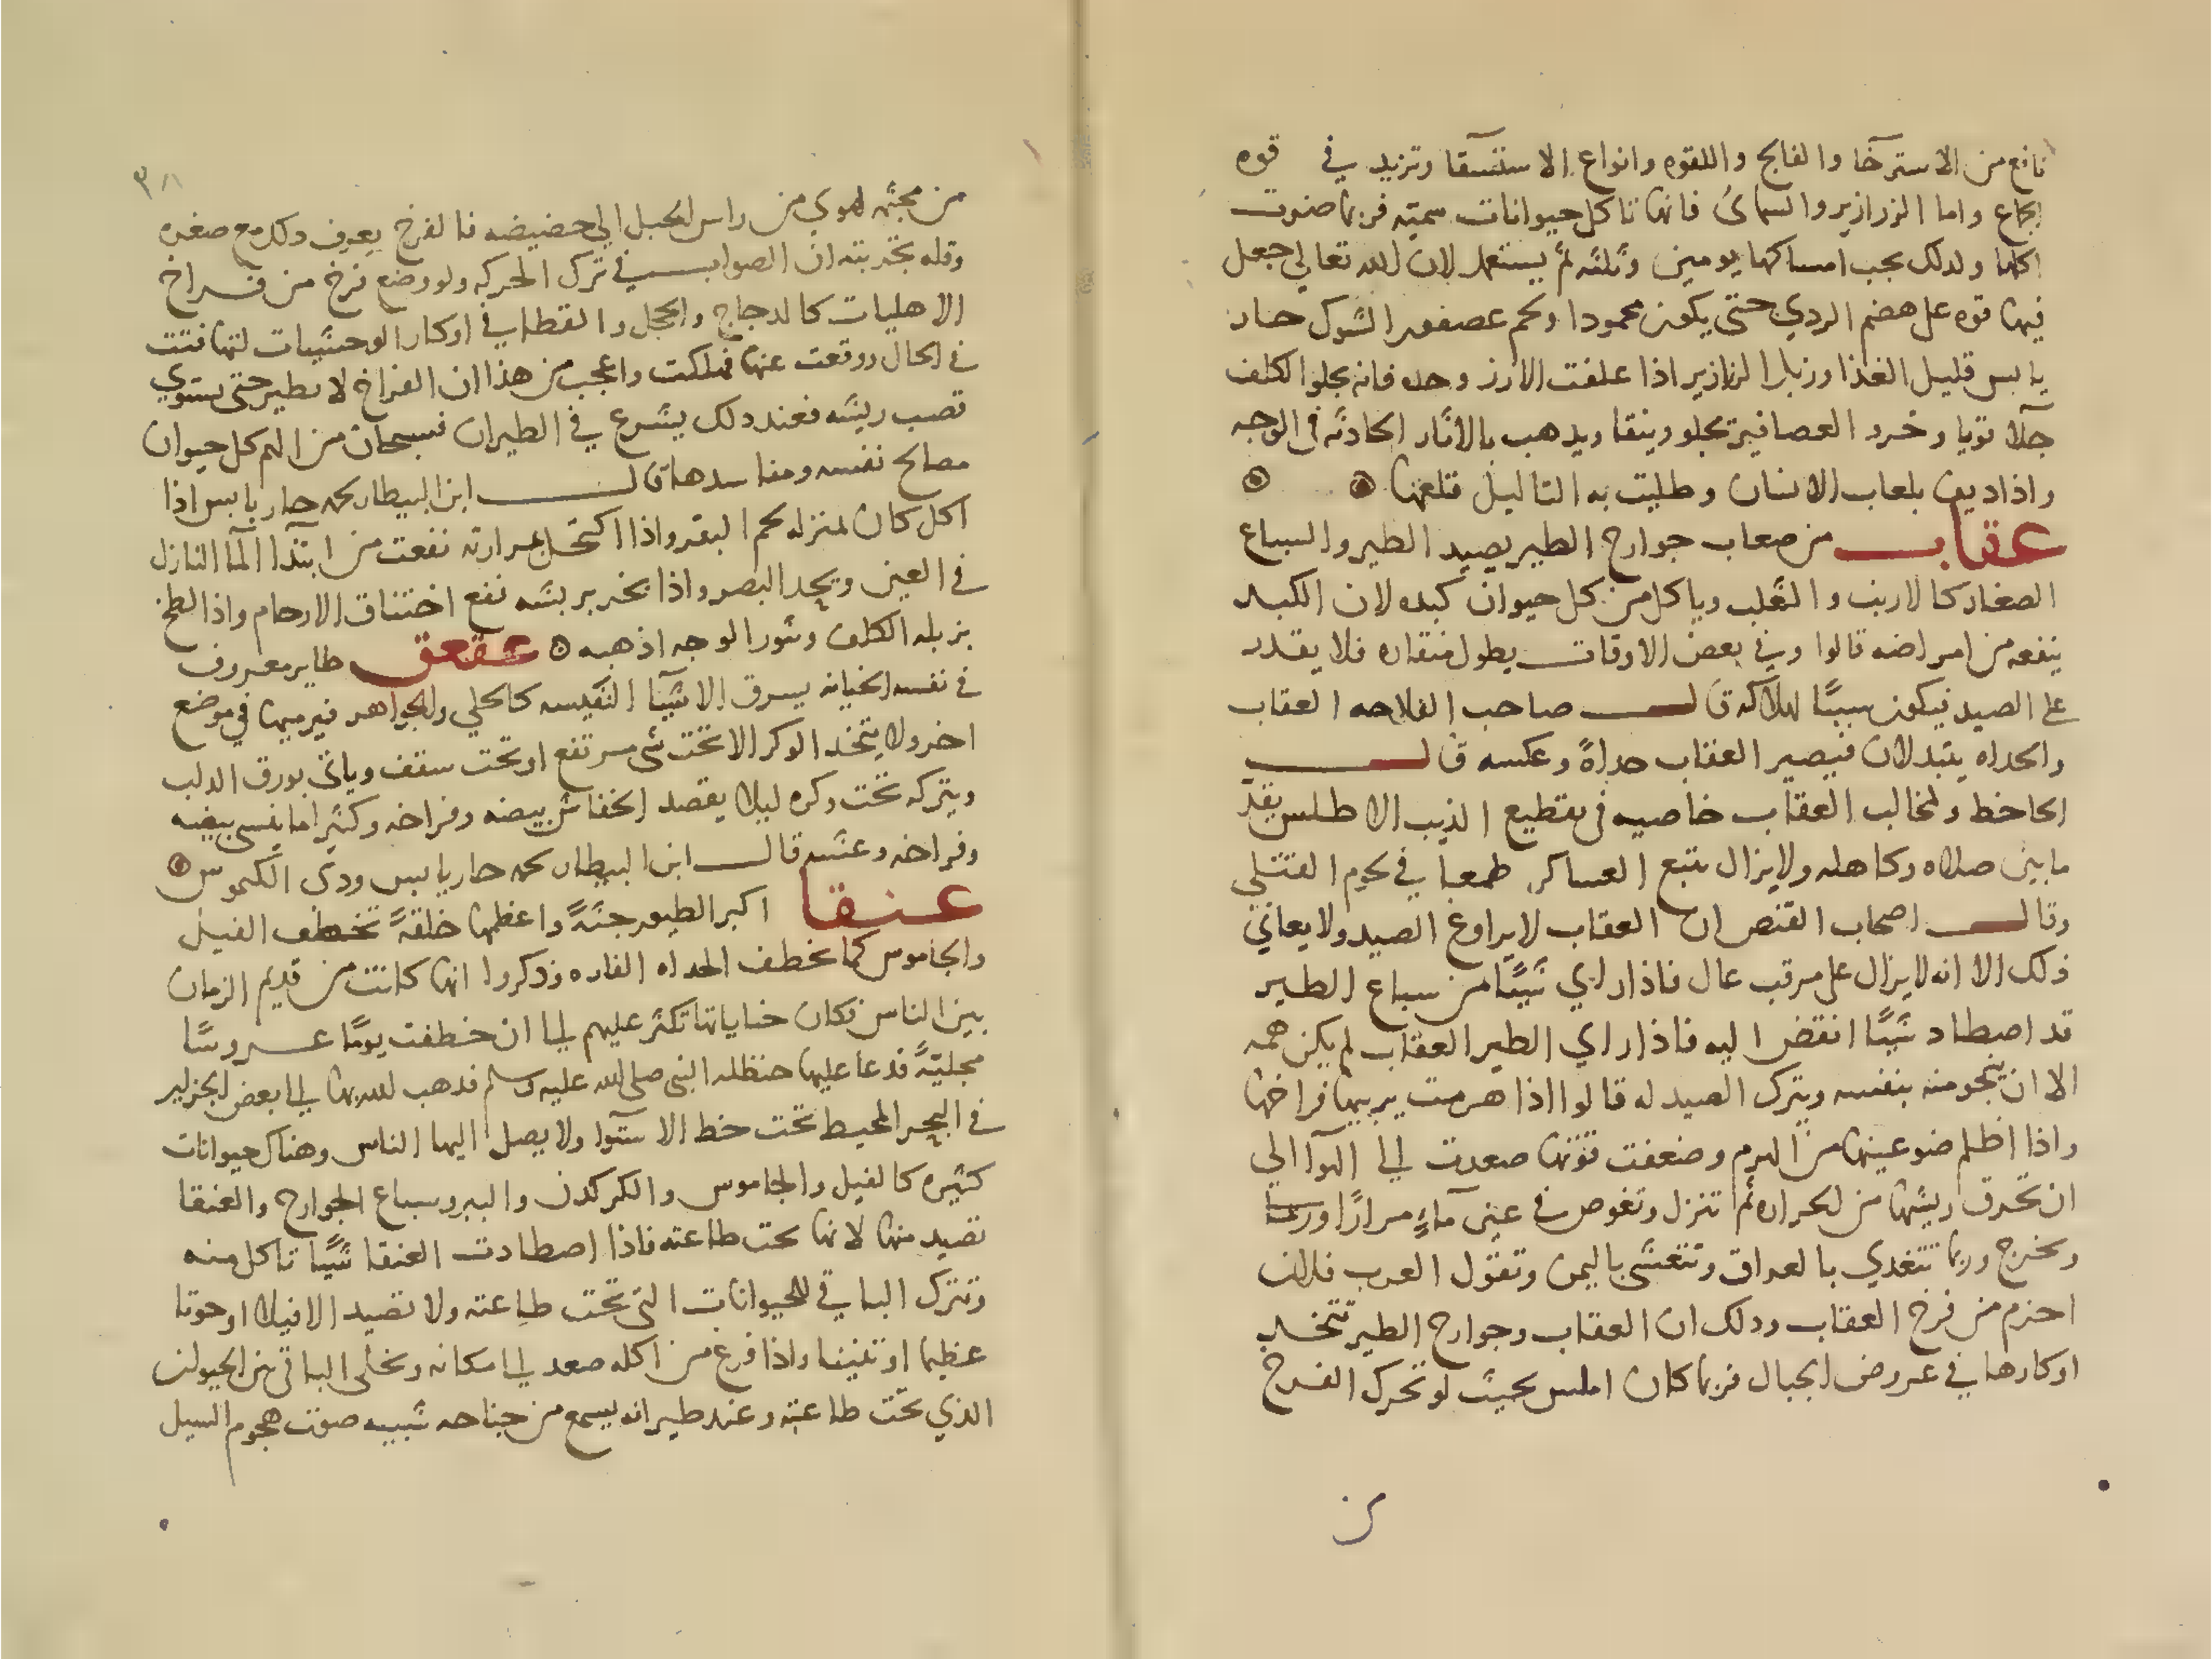 نافع من الاسترخا والفالج واللقوه وانواع الاستسقا وتزيد في قوه
الجماع واما الزرازير والسمانى فانها تاكل حيوانات سميّه فربما ضرت
اكلها ولدلك يجب امساكها يومين وثلثه ثم يستعمل لان الله تعالي جعل
فيها قوه علي هضم الردي حتى يكون محمودا ولحم عصفور الشوك حار
يابس قليل الغذا وزبل الزرازير اذا علفت الارز وحده فانه يجلوا الكلف
جلآ قويا وخرو العصافير تجلو وينقا ويدهب بالاثار الحادثه في الوجه
واذا ديف بلعاب الانسان وطليت به التاليل قلعها
عقاب من صعاب جوارح الطير يصيد الطير والسباع
الصغار كالارنب والثعلب وياكل من كل حيوان كبده لان الكبد
ينفعه من امراضه قالوا وفي بعض الاوقات يطول منقاره فلا يقدر
على الصيد فيكون سببًا لهلاكه قال صاحب الفلاحه العقاب
والحداه يتبدلان فيصير العقاب حداةً وعكسه قال
الجاحظ ولمخالب العقاب خاصيه في تقطيع الذيب الاطلس يقدّ
ما بين صلاه وكاهله ولايزال يتبع العساكر طمعا في لحوم القتلي
وقال اصحاب القنص ان العقاب لايراوغ الصيد ولا يعاني
ذلك الا انه لايزال على مرقب عال فاذا راي شيًا من سباع الطير
قد اصطاد شيًا انقض اليه فاذا راي الطير العقاب لم يكن همه
الا ان ينجو منه بنفسه ويترك الصيد له قالوا اذا هرمت يربيها فراخها
واذا اظلم ضو عينها من الهرم وضعفت قوتها صعدت الي الهوآ الي
ان تحرق ريشها من الحراره ثم تنزل وتغوص في عين مآءٍ مرارًا
وتخرج وربما تتغدي بالعراق وتتعشى باليمن وتقول العرب فلان
احزم من فرخ العقاب ودلك ان العقاب وجوارح الطير تتخد
اوكارها في عروض الجبال فربما كان املس بحيث لو تحرك الفرخ
من
٣٨
من مجثه لهوي من راس الجبل الي حضيضه فالفرخ يعرف دلك مع صغره
وقله تجربته ان الصواب في ترك الحركه ولو وضع فرخ من فراخ
الاهليات كالدجاج والحجل والقطا في اوكار الوحشيات لتهافتت
في الحال ووقعت عنها فهلكت واعجب من هذا ان الفراخ لا يطير حتى يستوي
قصب ريشه فعند دلك يشرع في الطيران فسبحان من الهم كل حيوان
مصالح نفسه ومفاسدها قال ابن البيطار لحمه حار يابس اذا
اكل كان بمنزله لحم البقر واذا اكتحل بمرارته نفعت من ابتدآ المآ النازل
في العين ويحد البصر واذا بخر بريشه نفع اختناق الارحام واذا لطخ
بزبله الكلف وبثور الوجه اذهبه عقعق طاير معروف
في نفسه الخيانه يسرق الاشيآ النفيسه كالحلي والجواهر فيرميها في موضع
اخر ولا يتخد الوكر الا تحت شى مرتفع او تحت سقف وياتي بورق الدلب
ويتركه تحت وكره ليلا يقصد الخفاش بيضه وفراخه وكثيرا ما ينسى بيضه
وفراخه وعشه قال ابن البيطار لحمه حار يابس ودى الكيموس
عنقا اكبر الطيور جثّةً واعظمها خلقةً تخطف الفيل
والجاموس كما تخطف الحداه الفاره وذكروا انها كانت من قديم الزمان
بين الناس فكان جناياتها تكثر عليهم الي ان خطفت يومًا عروسًا
مجليّةً فدعا عليها حنظله النبي صلى الله عليه وسلم فدهب الله بها الي بعض الجزاير
في البحر المحيط تحت خط الاستوآ ولا يصل اليها الناس وهناك حيوانات
كثيره كالفيل والجاموس والكركدن والببر وسباع الجوارح والعنقا
تصيد منها لانها تحت طاعته فاذا اصطادت العنقا شيًا تاكل منه
وتترك الباقي للحيوانات التي تحت طاعته ولا تصيد الا فيلا او حوتا
عظيما او تنينا واذا فرغ من اكله صعد الي مكانه وتخلى الباقي من الحيوان
الذي تحت طاعته وعند طيرانه يسمع من جناحه شبيه صوت هجوم السيل